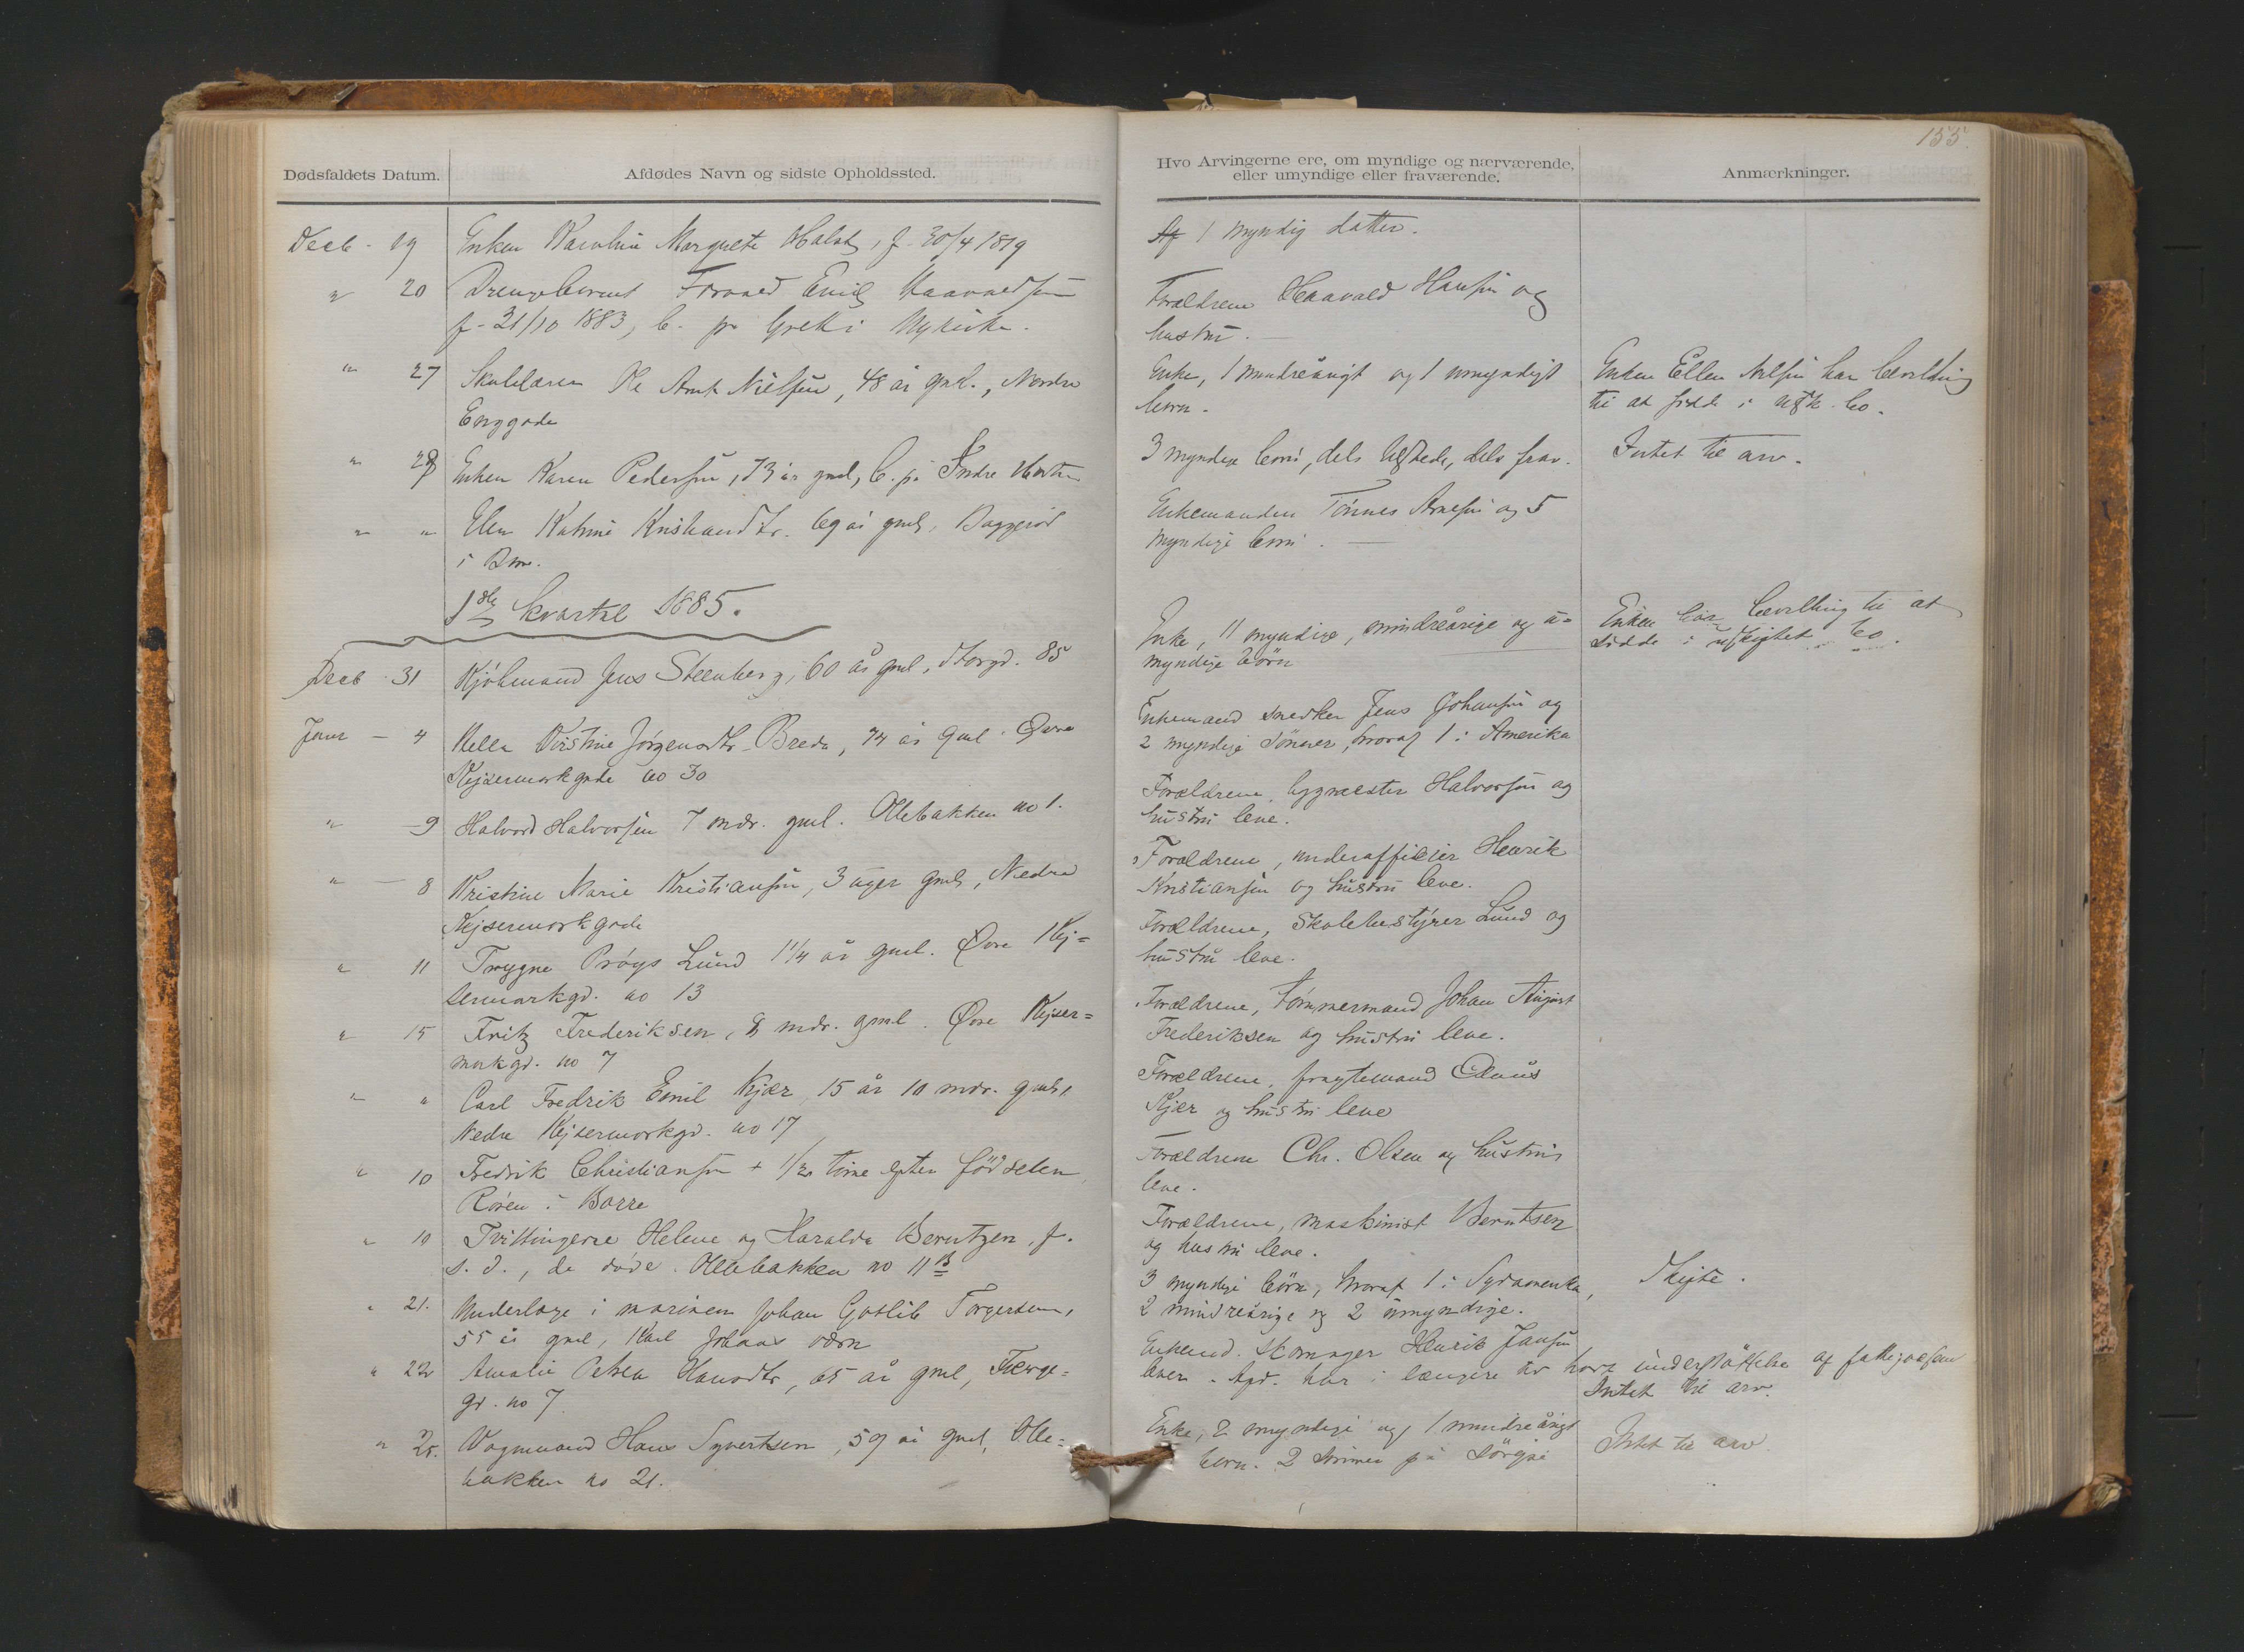 155.
Dødsfaldets Datum.
Afdødes Navn og sidste Opholdssted.
Decb - 19 Enken Karoline Margrete f. 30/4 1819
" 20 Drengebarnet Emil Haavaldsen
f. 21/10 1883, b. på i Nykirke.
" 27 Skolelærer Ole Nielsen, 48 år gml., Nordre
Enggade
" 28 Enken Karen Pedersen, 73 år gml, b. på Indre Horten
" " Elen Katrine Kristiandtr. 69 år gml,
i
1ste Kvartal 1885.
Decb 31 Kjøbmand Jens Steenberg, 60 år gml, Storgd. 85
Janr - 4 Kirstine Jørgensdtr Breda, 74 år gml. Øvre
Kejsermarkgade no 30
" - 9 Halvord Halvorsen 7 mdr. gml. Ollebakken no 1.
" - 8 Kristine Marie Kristiansen, 3 uger gml, Nedre
Kejsermarkgade
" 11 Trygve Lund 1 1/4 år gml. Øvre Kej=
sermarkgd. no 13
" 15 Fritz Frederiksen, 8 mdr. gml. Øvre Kejser=
markgd. no 7
" " Carl Fredrik Emil Kjær, 15 år 10 mdr. gml,
Nedre Kejsermarkgd. no 17
" 10 Fredrik Christiansen + 1/2 time efter fødselen,
Røren i Borre
" 10 Tvillingerne Helene og Haralda Berntzen, f.
s. d., de døde. Ollebakken no 11 B
" 21. Underlæge i marinen Johan Gotlib Torgersen,
55 år gml, Karl Johans værn
" 22 Amalie Petrea Hansdtr, 65 år gml, Færge=
gd. no 7.
" 25. Vognmand Hans Syvertsen, 59 år gml, Olle=
bakken no 21.
Hvo Arvingerne ere, om myndige og nærværende,
eller umyndige eller fraværende.
Anmærkninger.
Af 1 myndig datter.
Forældrene Haavald Hansen og
hustru.
Enke, 1 mindreårigt og 1 umyndigt
barn.
Enken Ellen Nilsen har bevilling
til at sidde i usk. bo.
3 myndige børn, dels tilstede, dels frav.
Intet til arv.
Enkemanden Tønnes Arnesen og 5
myndige børn.
Enke, 11 myndige, mindreårige og u=
myndige børn
Enken har bevilling til at
sidde i uskiftet bo.
Enkemand snedker Jens Johansen og
2 myndige sønner, hvoraf 1 i Amerika
Forældrene, bygmester Halvorsen og
hustru leve.
Forældrene, underofficier Henrik
Kristiansen og hustru leve.
Forældrene, Skolebestyrer Lund og
hustru leve.
Forældrene, tømmermand Johan August
Frederiksen og hustru leve.
Forældrene, fragtemand Claus
Kjær og hustru leve
Forældrene Chr. Olsen og hustru
leve.
Forældrene, maskinist Berntsen
og hustru leve.
3 myndige børn, hvoraf 1 i Sydamerika,
2 mindreårige og 2 umyndige.
Skifte.
Enkemd. skomager Henrik Jansen
lever. Afd. har i længere tid havt understøttelse af fattigvæsen
Intet til arv.
Enke, 2 myndige og 1 mindreårigt
barn. 2 på
Intet til arv